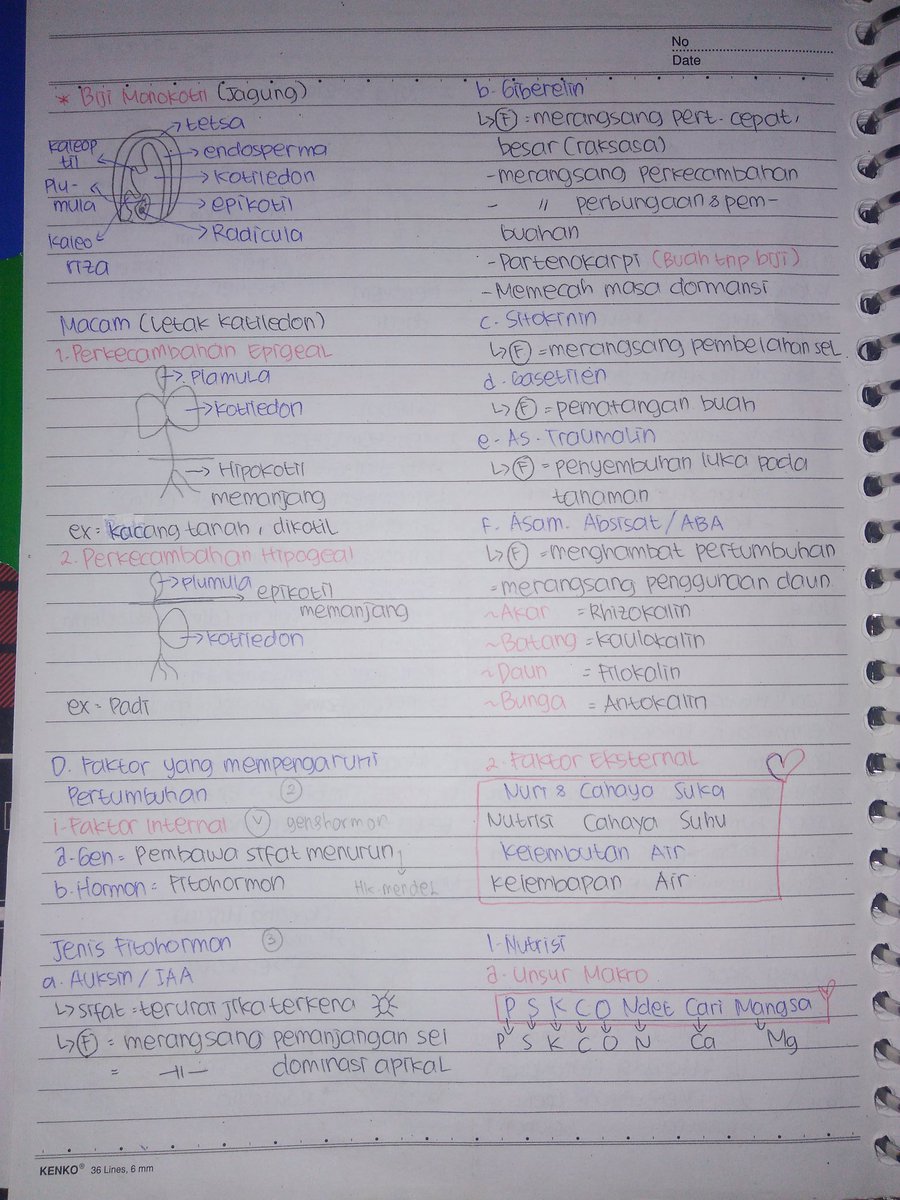 No
Date
* Biji Monokotil (Jagung)
tetsa
endosperma
kotiledon
epikotil
Radicula
kaleop
til
Plu-
mula
kaleo
riza
Macam (Letak katiledon)
1. Perkecambahan Epigeal
Plamula
kotiledon
Hipokotil
memanjang
ex = kacang tanah, dikotil
2. Perkecambahan Hipogeal
plumula
epikotil
memanjang
kotiledon
ex = Padi
D. Faktor yang mempengaruhi
Pertumbuhan (2)
1. Faktor Internal (V) gen&hormon
a. Gen = Pembawa sifat menurun
Hk. mendel
b. Hormon = Fitohormon
Jenis Fitohormon (3)
a. Auksin / IAA
↳ sifat = terurai jika terkena
↳ (F) = merangsang pemanjangan sel
= -II- dominasi apikal
b. Giberelin
↳ (F) = merangsang pert. cepat,
besar (raksasa)
- merangsang perkecambahan
- " perbungaan & pem-
buahan
- Partenokarpi (Buah tnp biji)
- Memecah masa dormansi
c. Sitokinin
↳ (F) = merangsang pembelahan sel
d. Gasetilen
↳ (F) = pematangan buah
e. As. Traumalin
↳ (F) = penyembuhan luka pada
tanaman
F. Asam. Absisat / ABA
↳ (F) = menghambat pertumbuhan
= merangsang pengguraan daun
~Akar = Rhizokalin
~Batang = kaulokalin
~Daun = Filokalin
~Bunga = Antokalin
2. Faktor Eksternal
Nuri & Cahaya Suka
Nutrisi Cahaya Suhu
Kelembutan Air
Kelembapan Air
1. Nutrisi
a. Unsur Makro
P S K C O Ndet Cari Mangsa
P S K C O N Ca Mg
KENKO® 36 Lines, 6 mm